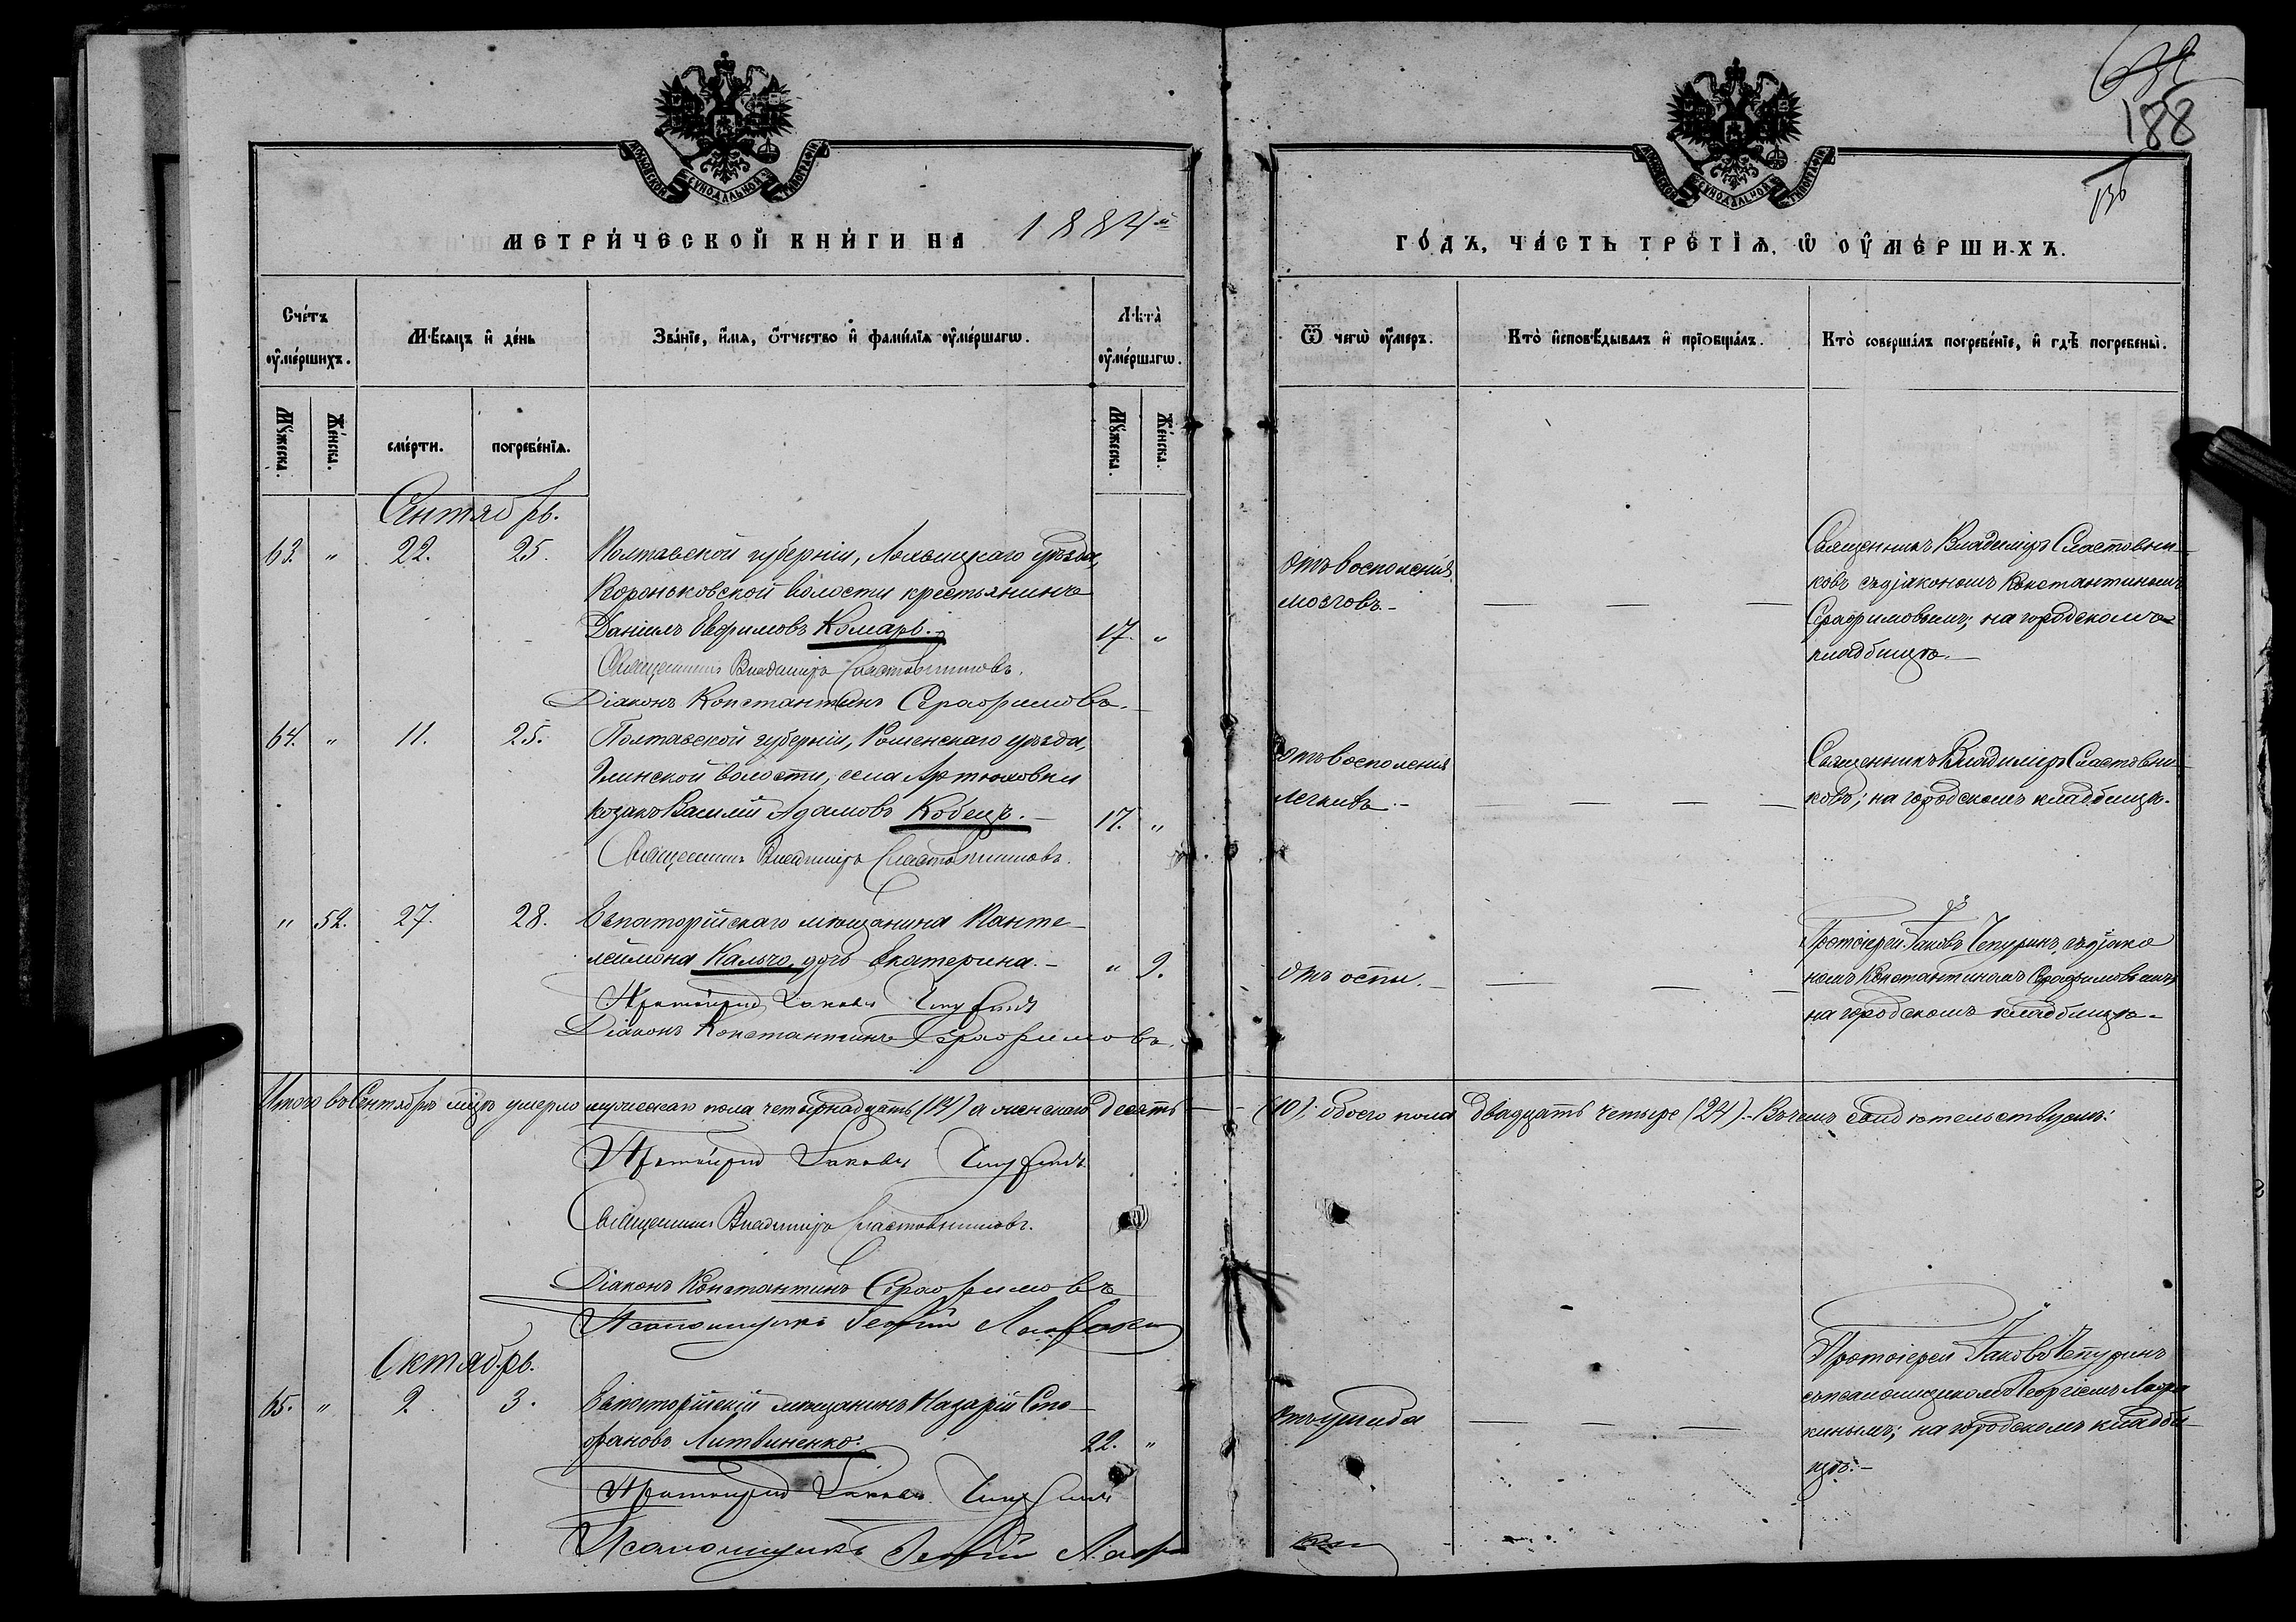 188
136
МОСКОВСКОЙ СѴНОДАЛЬНОЙ ТИПОГРАФІИ
МОСКОВСКОЙ СѴНОДАЛЬНОЙ ТИПОГРАФІИ
МЕТРИ́ЧЕСКОЙ КНИ́ГИ НА 1884й
ГО́ДЪ, ЧА́СТЬ ТРЕ́ТІѦ, Ѡ ОУМЕ́РШИХЪ.
Сче́тъ оумершихъ.
Мѣсяцъ и де́нь
Зва́нїе, и́мя, о́тчество и фами́лїя оуме́ршагѡ.
Лѣта̀ оуме́ршагѡ.
Ѿ чегѡ̀ оу́меръ.
Кто̀ исповѣ́дывалъ и прїобща́лъ.
Кто̀ соверша́лъ погребе́нїе, и гдѣ̀ погребены̀.
Мꙋ́жеска.
Же́нска.
сме́рти.
погребе́нїѧ.
Мꙋ́жеска.
Же́нска.
Сентябрь.
63. " 22. 25. Полтавской губерніи, Лохвицкаго уѣзда,
Вороньковской волости крестьянинъ
Даніилъ Евфимовъ Комаръ. 17. "
Священникъ Владиміръ Сластовниковъ.
Діаконъ Константинъ Серафимовъ.
отъ восполенія
мозговъ
Священникъ Владиміръ Сластовни-
ковъ съ діакономъ Константиномъ
Серафимовымъ; на городскомъ
кладбищѣ.
64. " 11. 25. Полтавской губерніи, Роменскаго уѣзда,
Глинской волости, села Артюховки
козакъ Василій Адамовъ Кобецъ. 17. "
Священникъ Владиміръ Сластовниковъ.
отъ восполенія
легкихъ.
Священникъ Владиміръ Сластовни-
ковъ; на городскомъ кладбищѣ.
" 52. 27. 28. Евпаторійскаго мѣщанина Панте-
леймона Кальчо, дочь Екатерина. " 9.
Протоіерей Іаковъ Чепуринъ
Діаконъ Константинъ Серафимовъ.
отъ оспы.
Протоіерей Іаковъ Чепуринъ съ діако
номъ Константиномъ Серафимовымъ;
на городскомъ кладбищѣ.
Итого въ Сентябрѣ мцѣ умерло мужескаго пола четырнадцать (14) и женскаго десять (10); обоего пола двадцать четыре (24). Въ чемъ свидѣтельствуемъ:
Протоіерей Іаковъ Чепуринъ
Священникъ Владиміръ Сластовниковъ.
Діаконъ Константинъ Серафимовъ
Псаломщикъ Георгій
Октябрь.
65. " 2. 3. Евпаторійскій мѣщанинъ Назарій Сте-
фановъ Литвиненко. 22. "
Протоіерей Іаковъ Чепуринъ
Псаломщикъ Георгій
отъ ушиба
Протоіерей Іаковъ Чепуринъ
съ псаломщикомъ Георгіемъ
на городскомъ кладби-
щѣ.